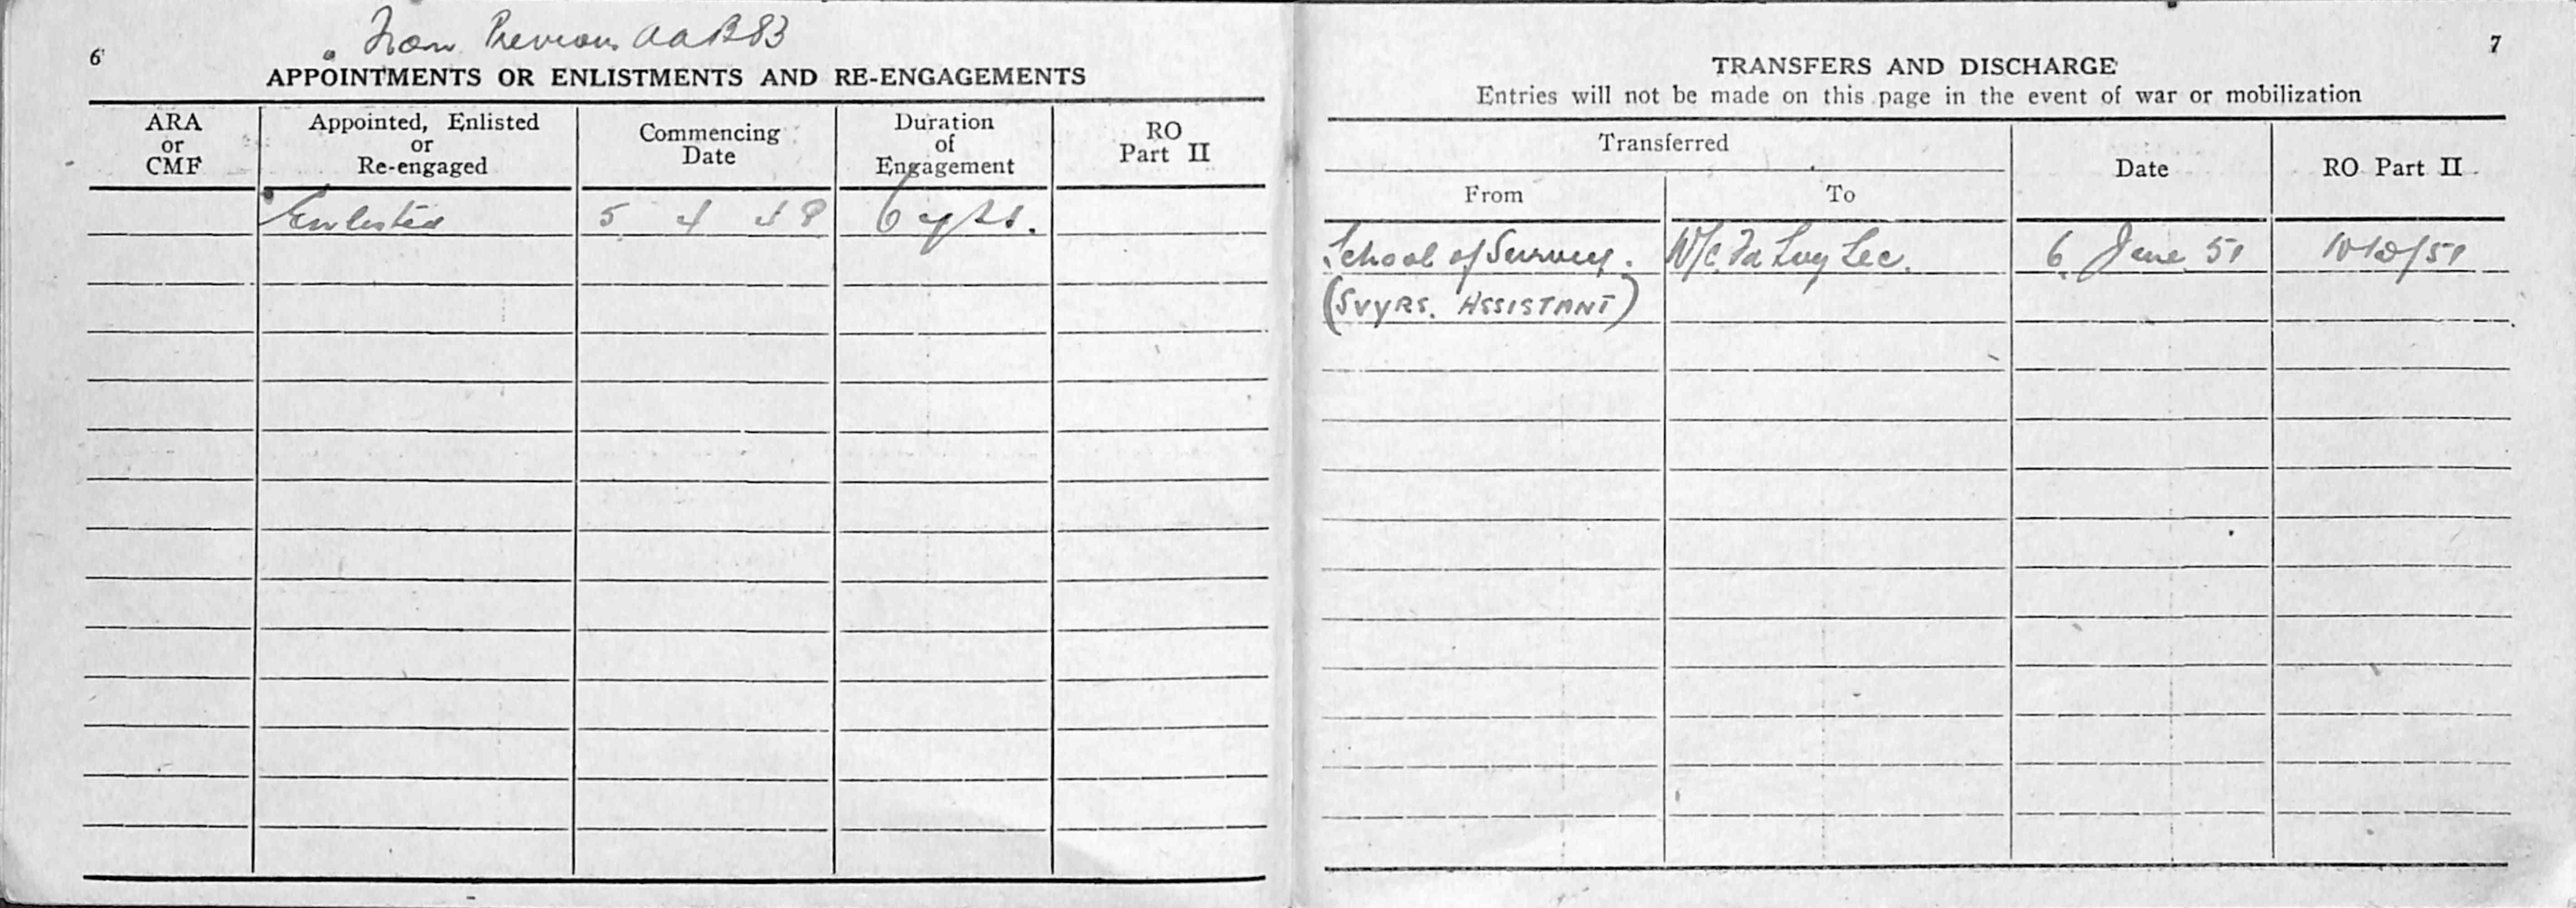 From Previous AAB83
6
APPOINTMENTS OR ENLISTMENTS AND RE-ENGAGEMENTS
ARA or CMF
Appointed, Enlisted or Re-engaged
Commencing Date
Duration of Engagement
RO Part II
Enlisted 5 4 48 6 yrs.
7
TRANSFERS AND DISCHARGE
Entries will not be made on this page in the event of war or mobilization
Transferred
From
To
Date
RO Part II
School of Survey. 6 June 51
(SVYRS. ASSISTANT)